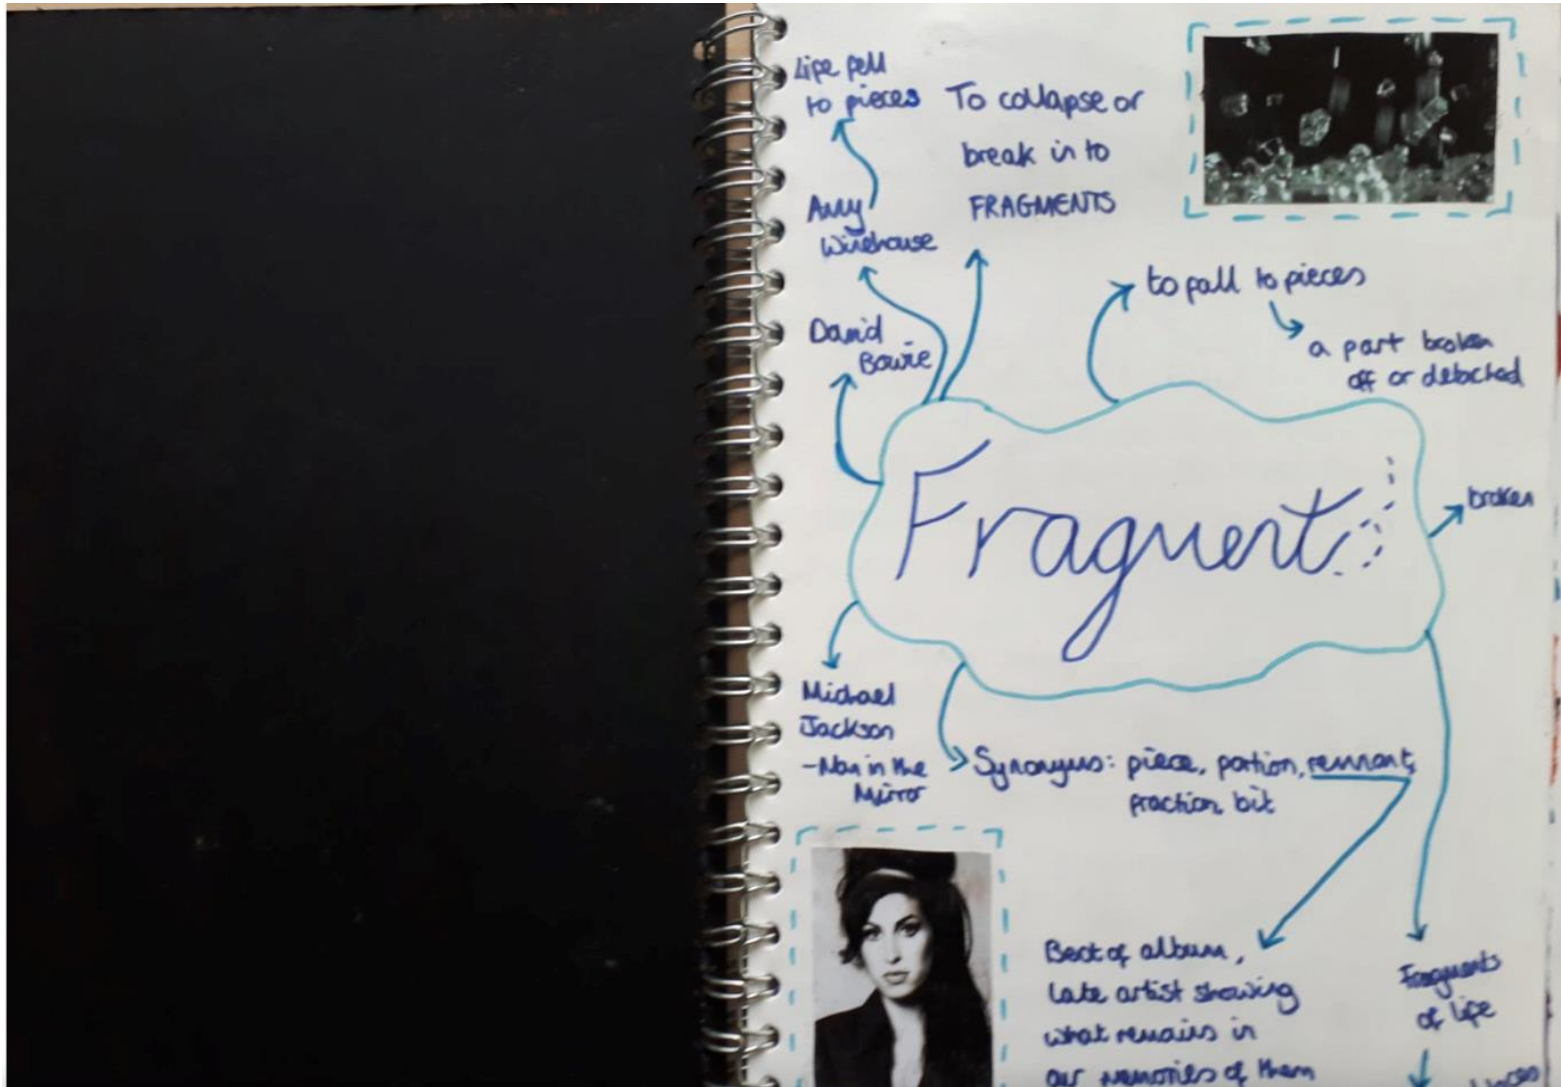 Life fell
to pieces
To collapse or
break in to
FRAGMENTS
Amy
Winehouse
to fall to pieces
a part broken
off or detached
David
Bowie
Fragment
broken
Michael
Jackson
-Man in the
Mirror
Synonyms: piece, portion, remnant,
fraction, bit
Best of album,
late artist showing
what remains in
our memories of them
Fragments
of life